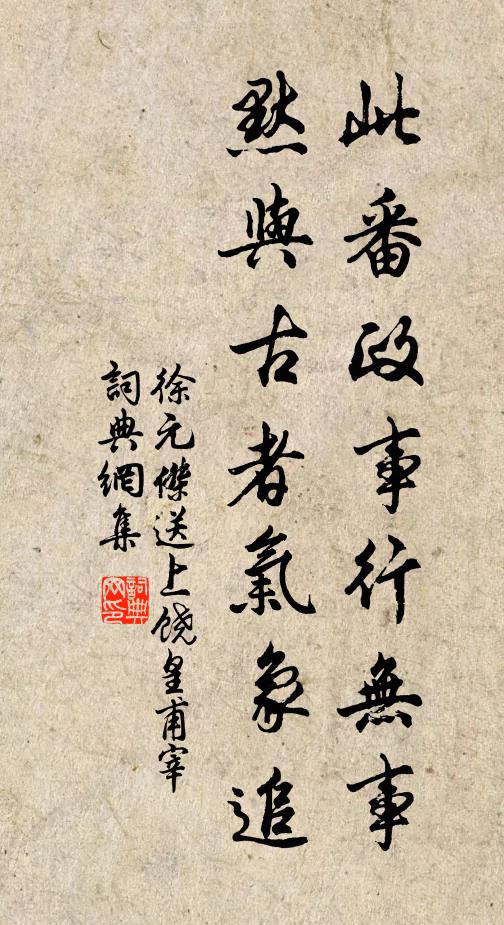 此番政事行無事
默與古者氣象追
徐元傑送上饒皇甫宰
詞典網集
詞典网印